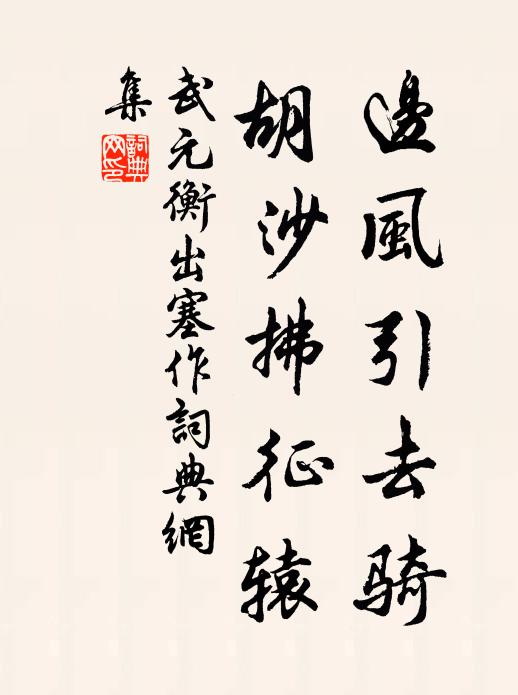 邊風引去骑
胡沙拂征辕
武元衡出塞作詞典網
集
詞典網印